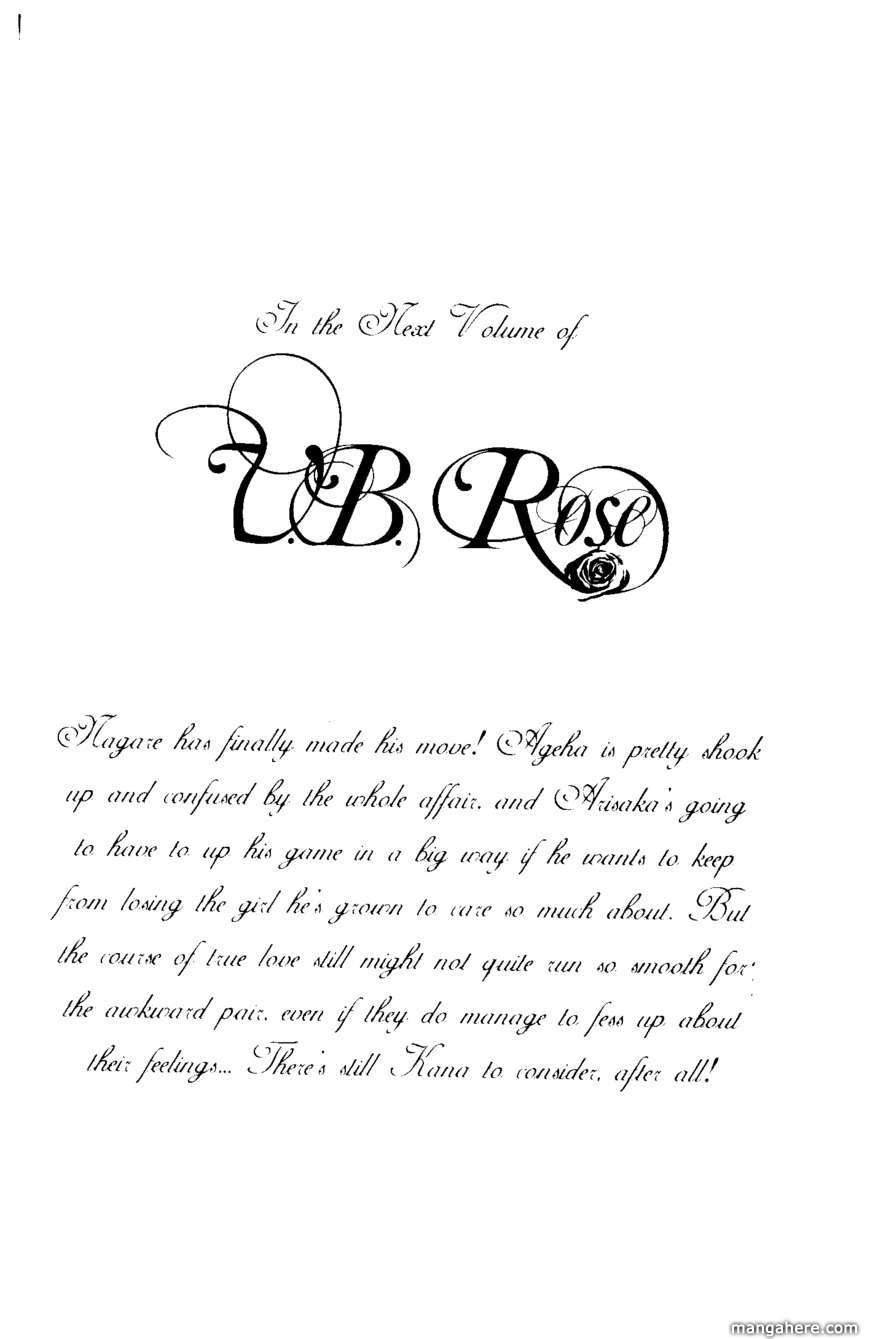 In the Next Volume of
V.B. Rose
Nagare has finally made his move! Ageha is pretty shook
up and confused by the whole affair, and Arisaka's going
to have to up his game in a big way if he wants to keep
from losing the girl he's grown to care so much about. But
the course of true love still might not quite run so smooth for
the awkward pair, even if they do manage to fess up about
their feelings... There's still Kana to consider, after all!
mangahere.com